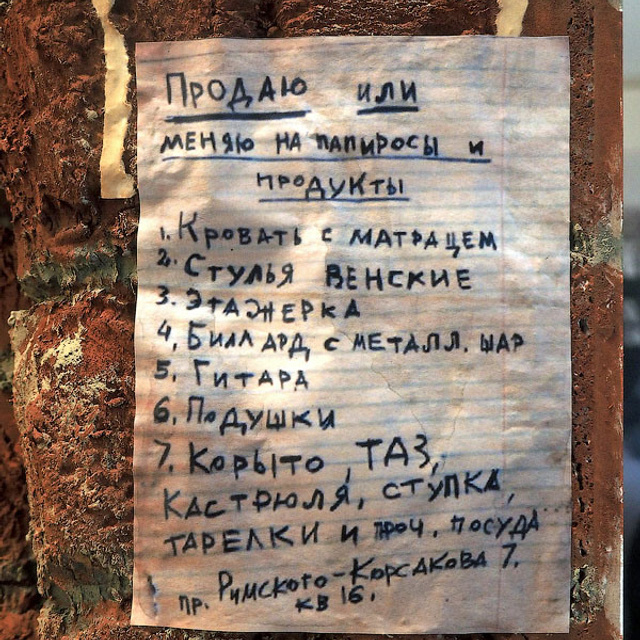 Продаю или
меняю на папиросы и
продукты
1. Кровать с матрацем
2. Стулья венские
3. Этажерка
4. Биллард с металл. шар
5. Гитара
6. Подушки
7. Корыто, таз,
кастрюля, ступка,
тарелки и проч. посуда
пр. Римского-Корсакова 7.
кв 16.